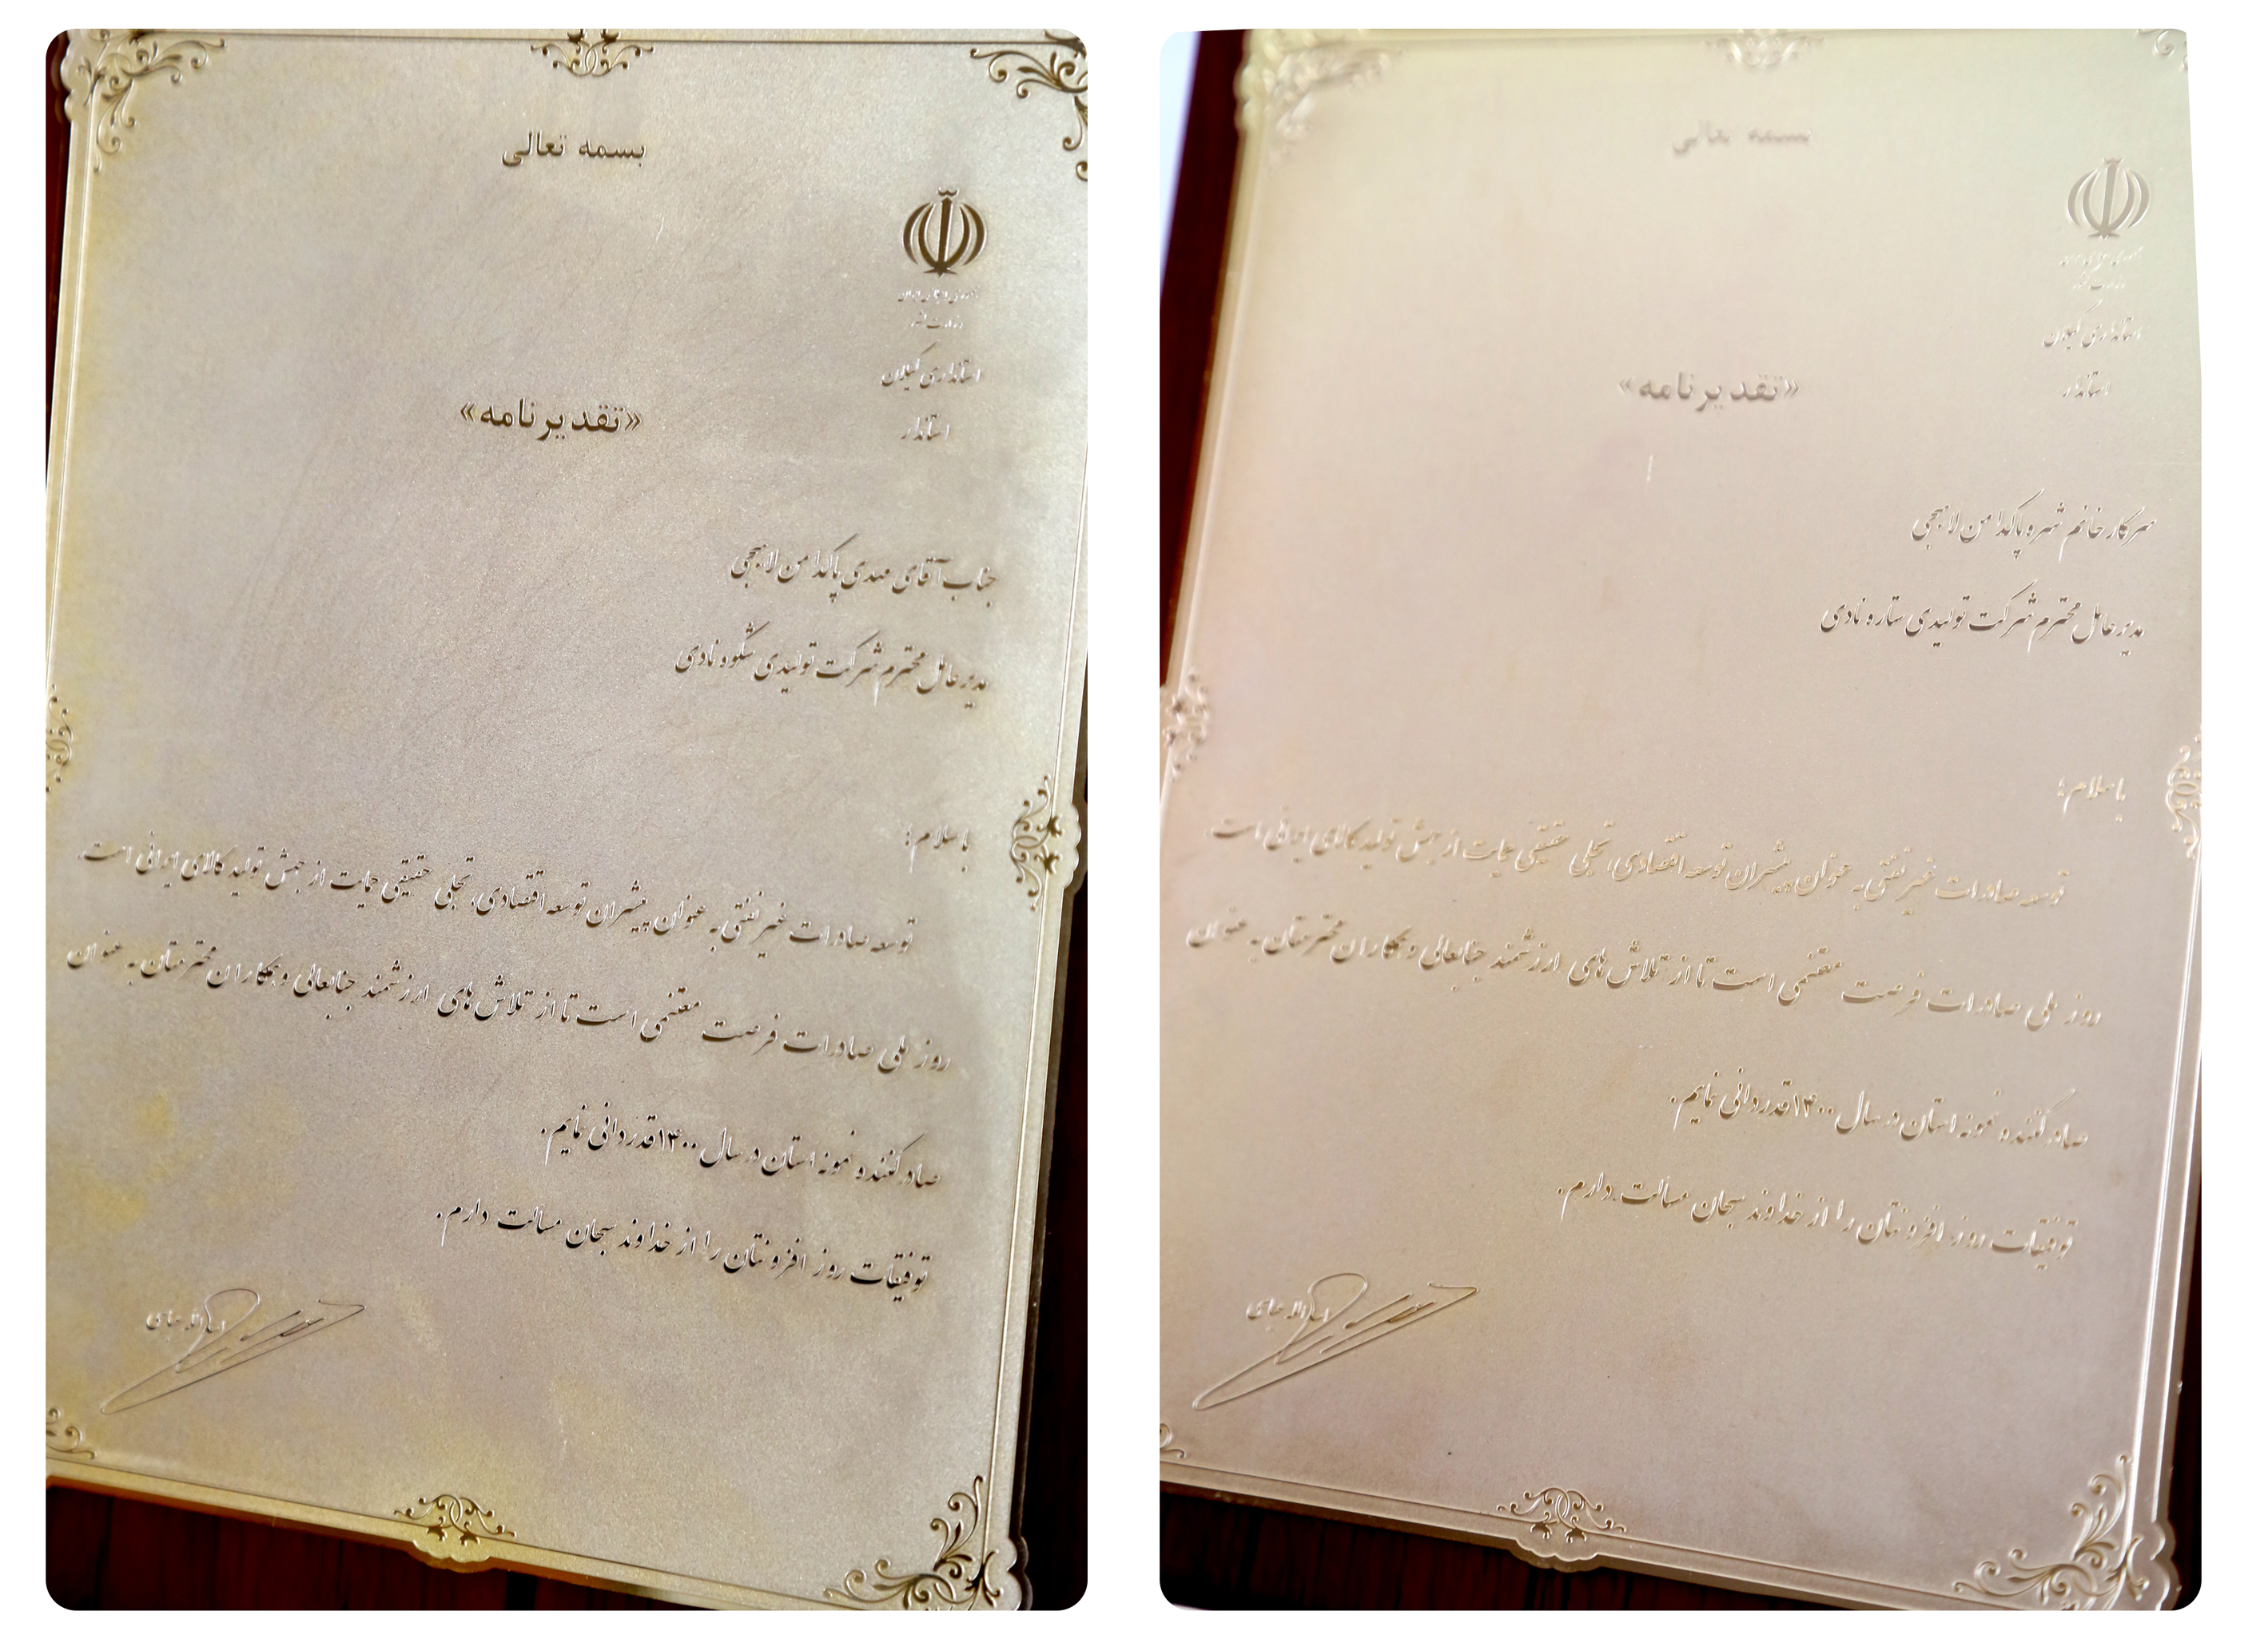 بسمه تعالی
جمهوری اسلامی ایران
وزارت کشور
استانداری گیلان
استاندار
«تقدیرنامه»
جناب آقای مهدی پاکدامن لاهیجی
مدیرعامل محترم شرکت تولیدی شکوه نادی
با سلام؛
توسعه صادرات غیر نفتی به عنوان پیشران توسعه اقتصادی، تجلی حقیقی حمایت از جهش تولید کالای ایرانی است.
روز ملی صادرات فرصت مغتنمی است تا از تلاش های ارزشمند جنابعالی و همکاران محترمتان به عنوان
صادرکننده نمونه استان در سال ۱۴۰۰ قدردانی نمایم.
توفیقات روز افزونتان را از خداوند سبحان مسالت دارم.
بسمه تعالی
جمهوری اسلامی ایران
وزارت کشور
استانداری گیلان
استاندار
«تقدیرنامه»
سرکار خانم شهره پاکدامن لاهیجی
مدیرعامل محترم شرکت تولیدی ستاره نادی
با سلام؛
توسعه صادرات غیر نفتی به عنوان پیشران توسعه اقتصادی، تجلی حقیقی حمایت از جهش تولید کالای ایرانی است.
روز ملی صادرات فرصت مغتنمی است تا از تلاش های ارزشمند جنابعالی و همکاران محترمتان به عنوان
صادرکننده نمونه استان در سال ۱۴۰۰ قدردانی نمایم.
توفیقات روز افزونتان را از خداوند سبحان مسألت دارم.